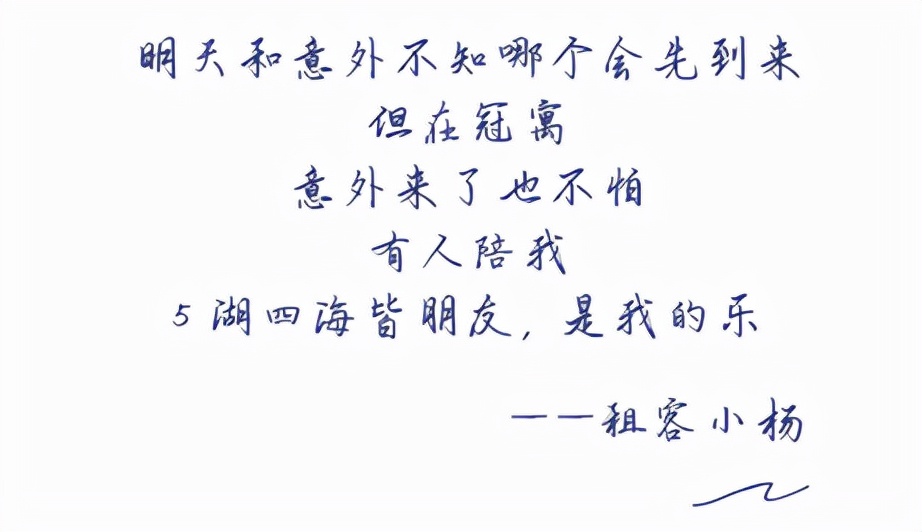 明天和意外不知哪个会先到来
但在冠寓
意外来了也不怕
有人陪我
5湖四海皆朋友,是我的乐
——租客小杨